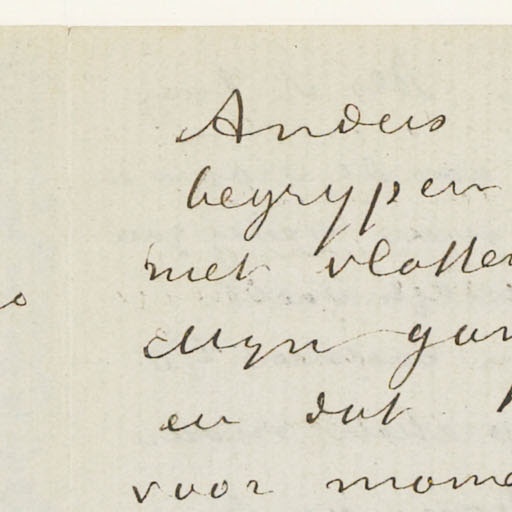 Anders
begrypen
met vlotten
Myn gan
en dat
voor mome